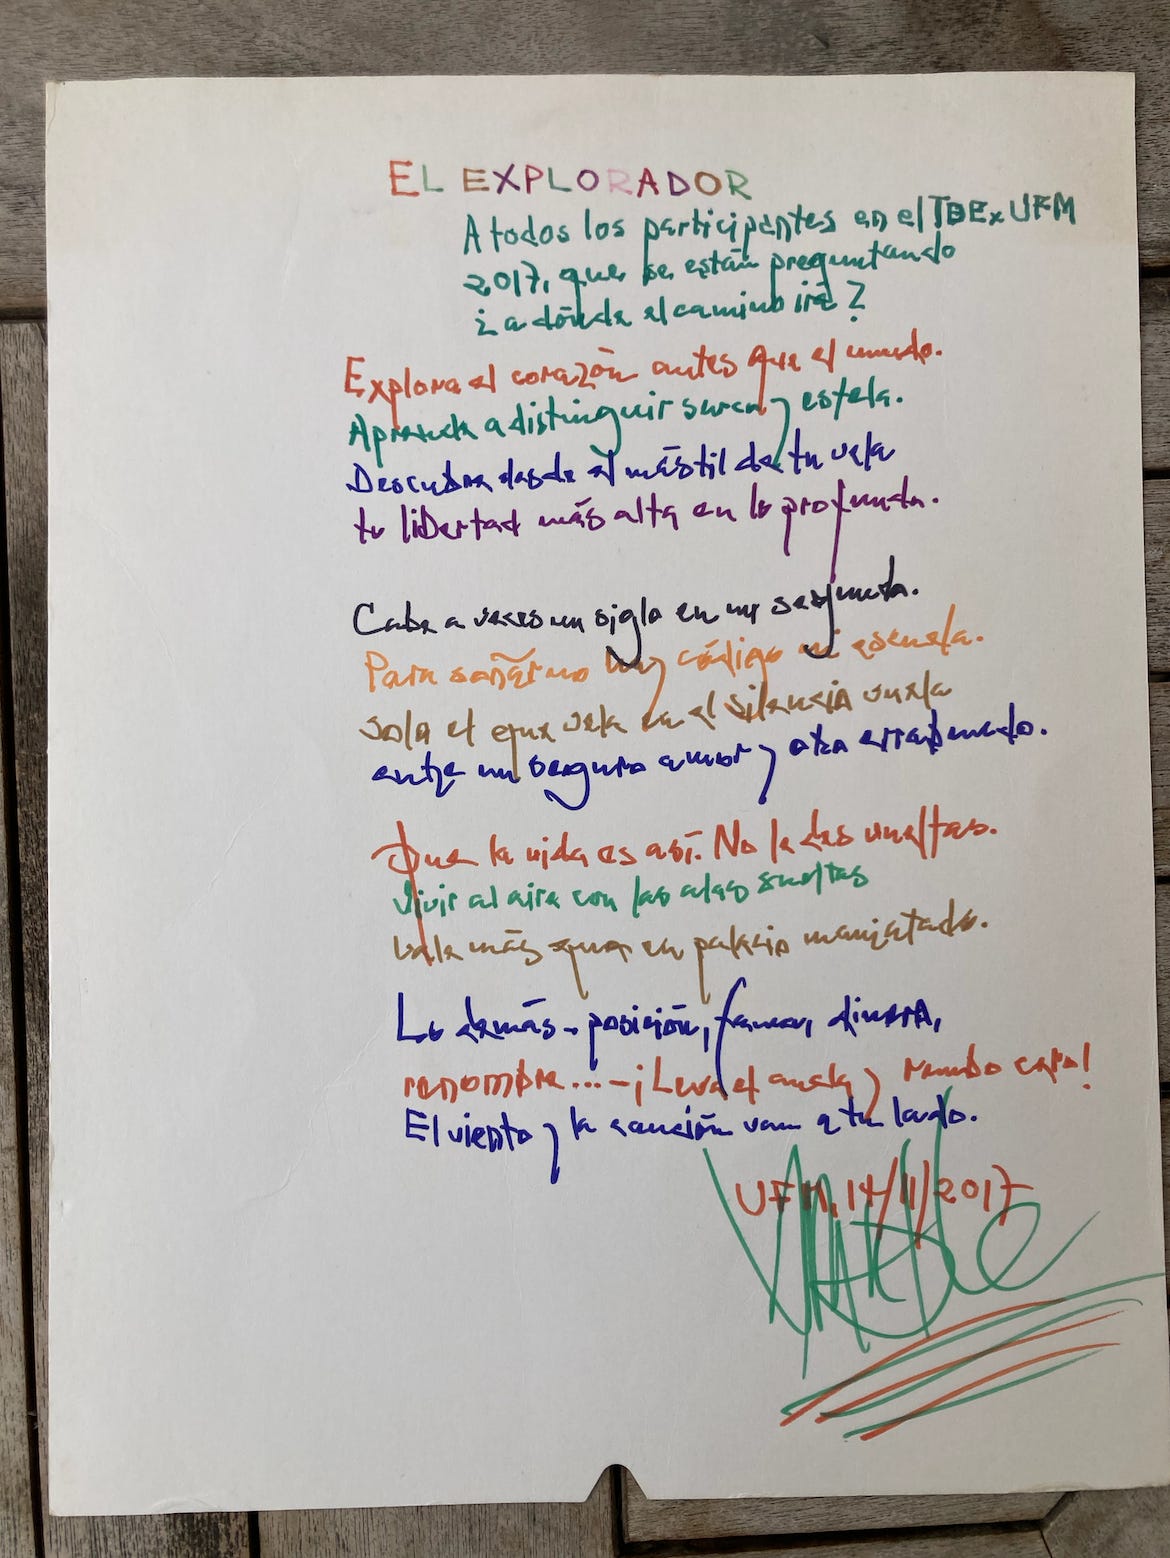 EL EXPLORADOR
A todos los participantes en el TDEx UFM
2017, que se están preguntando
¿a dónde el camino irá?
Explora el corazón antes que el mundo.
Aprende a distinguir surco y estela.
Descubre desde el mástil de tu vela
tu libertad más alta en lo profundo.
Cabe a veces un siglo en un segundo.
Para soñar no hay código ni escuela.
Solo el que vela en el silencio vuela
entre un seguro amor y otro errabundo.
Que la vida es así. No le des vueltas.
Vivir al aire con las alas sueltas
vale más que en palacio maniatado.
Lo demás - posición, fama, dinero,
renombre...- ¡Leva el ancla y rumbo cero!
El viento y la canción van a tu lado.
UFM, 14/11/2017